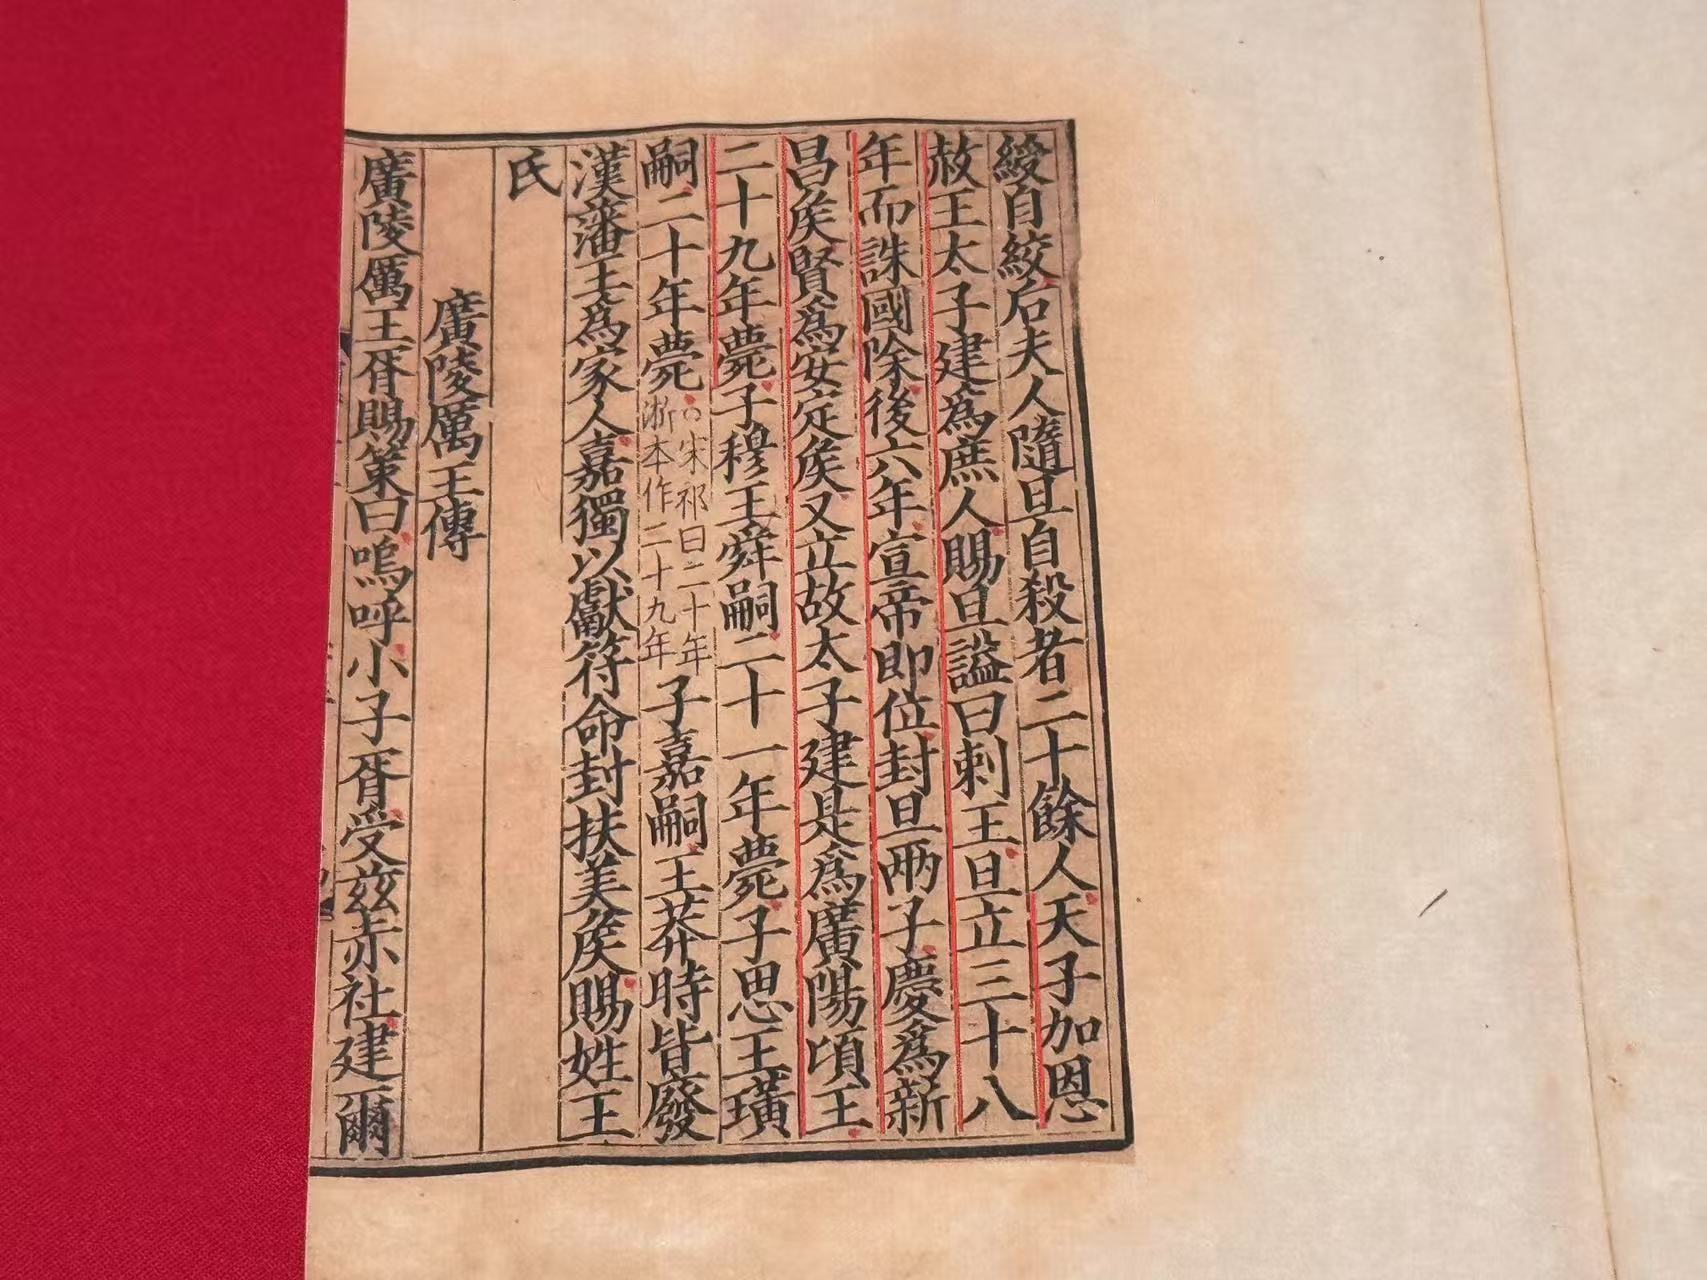 綬自絞后夫人隨旦自殺者二十餘人天子加恩
赦王太子建爲庶人賜旦謚曰剌王旦立三十八
年而誅國除後六八年宣帝即位封旦兩子慶爲新
昌矦賢爲安定矦又立故太子建是爲廣陽頃王
二十九年薨子穆王舜嗣二十一年薨子思王璜
嗣二十年薨
○宋祁曰二十年
浙本作二十九年
子嘉嗣王莽時皆廢
漢藩王爲家人嘉獨以獻符命封扶美矦賜姓王
氏
廣陵厲王傳
廣陵厲王胥賜策曰嗚呼小子胥受茲赤社建爾